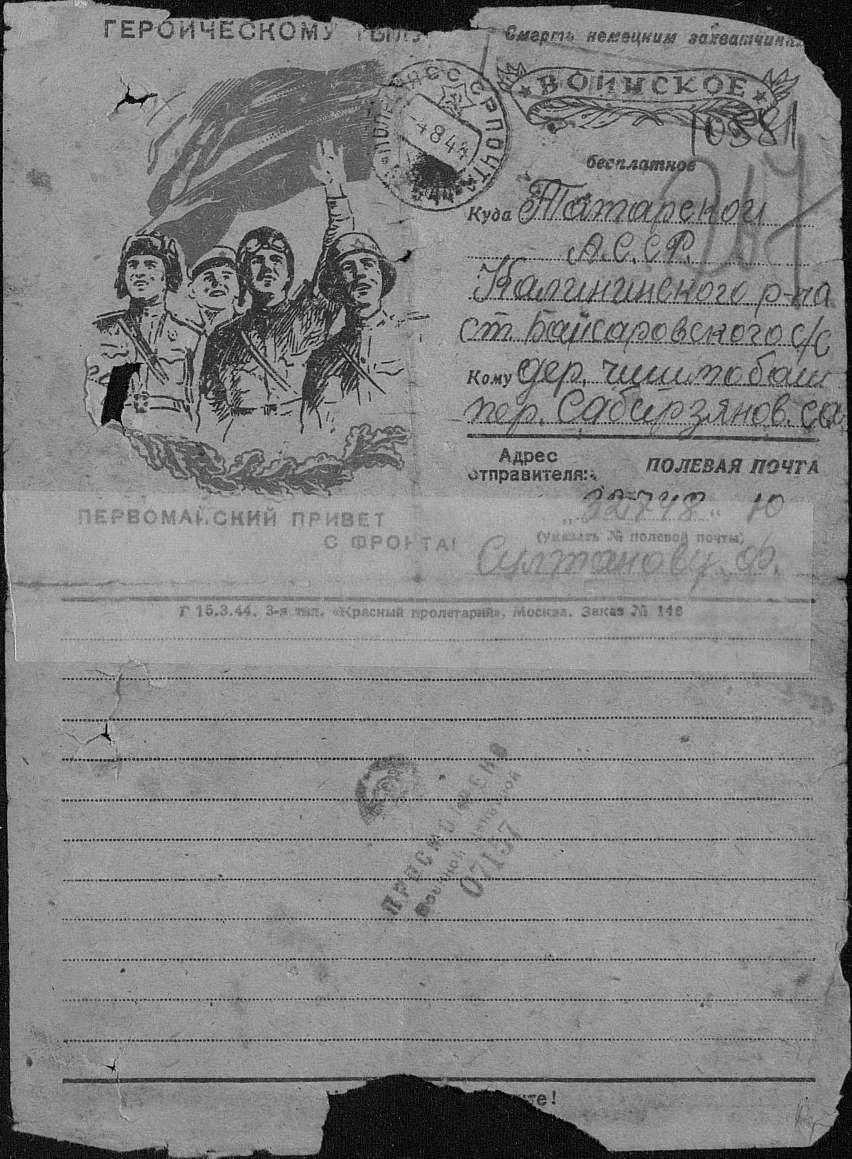 ГЕРОИЧЕСКОМУ ТЫЛУ
Смерть немецким захватчикам
ВОИНСКОЕ
10381
бесплатное
ПОЧТА
4 8 44
Куда Татарской
А.С.С.Р.
Калининского р-на
ст Байсаровского с/с
Кому дер. чишмобаш
пер. Сабирзянов. са
Адрес отправителя:
ПОЛЕВАЯ ПОЧТА
"32748" Ю
(указать № полевой почты)
Султанову Ф.
ПЕРВОМАЙСКИЙ ПРИВЕТ
С ФРОНТА!
Г 15.3.44. 3-я тип. «Красный пролетарий». Москва. Заказ № 146
ПРОСМОТРЕНО
Военной Цензурой
07157
те!